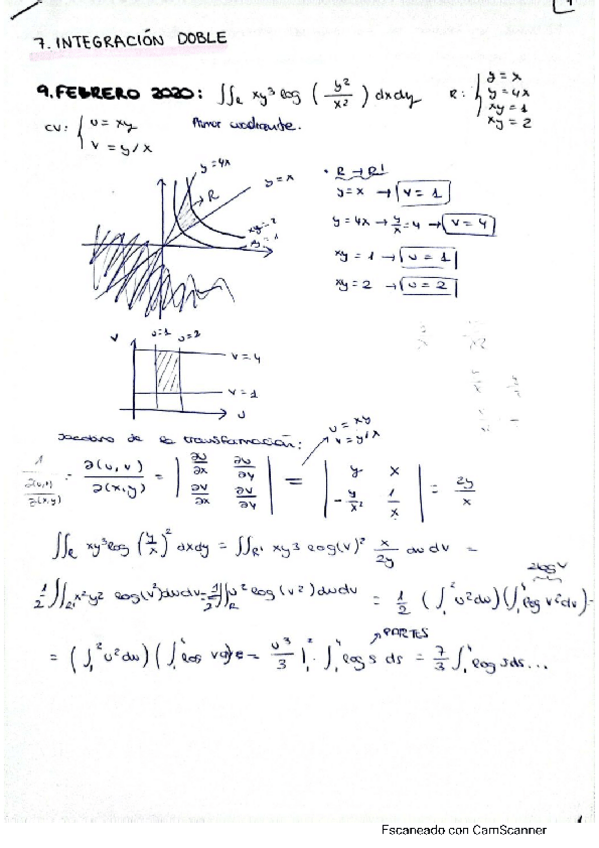 7. INTEGRACIÓN DOBLE
9. FEBRERO 2020: ∬R xy³ log (y²/x²) dxdy R: { y = x
y = 4x
xy = 1
xy = 2
CV: { u = xy
v = y/x
Primer cuadrante.
y = 4x
y = x
R
xy = 2
xy = 1
• R → R'
y = x → v = 1
y = 4x → y/x = 4 → v = 4
xy = 1 → u = 1
xy = 2 → u = 2
v u=1 u=2
v = 4
v = 1
u
Jacobiano de la transformación: u = xy
v = y/x
∂(u,v)/∂(x,y) = | ∂u/∂x ∂u/∂y ; ∂v/∂x ∂v/∂y | = | y x ; -y/x² 1/x | = 2y/x
∬R xy³ log (y/x)² dxdy = ∬R' xy3 log(v)² x/2y du dv =
1/2 ∬R' x²y² log(v²) dudv = 1/2 ∬R' u² log(v²) dudv = 1/2 (∫₁² u² du)(∫₁⁴ log v² dv) =
2log v
PARTES
= (∫₁² u² du)(∫₁⁴ log v dv) = u³/3 |₁² · ∫₁⁴ log s ds = 7/3 ∫₁⁴ log s ds...
Escaneado con CamScanner